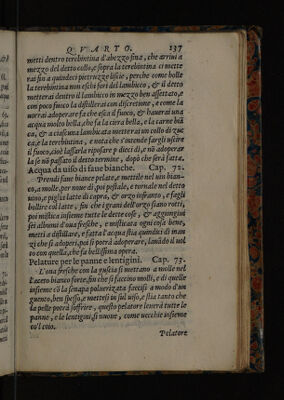 QVARTO. 137
metti dentro terebintina d'abezzo fina, che arriui a
mezzo del detto collo, e sopra la terebintina ci mette
rai fin a quindeci pietruzze liscie, perche come bolle
la terebintina non eschi fuori del lambico, & il detto
metterai dentro il lambico in mezzo ben assettato, e
con poco fuoco la distillerai con discretione, e come la
vorrai adoperare fa che esca il fuoco, & hauerai una
acqua molto bella, che fa la ciera bella, e la carne biã
ca, & a ciascuna lambicata metterai un collo di zuc
ca, e la terebintina, e nota che s'intende fargli uscire
il fuoco, cioè lassarla riposare dieci dì, e nõ adoperar
la se nõ passato il detto termine, dopò che serà fatta.
Acqua da uiso di faue bianche. Cap. 72.
Prendi faue bianche pelate, e mettile nel uin bian-
co, a molle, per noue dì, poi pestale, e tornale nel detto
uino, e piglia latte di capra, & orzo infranto, e fagli
bollire col latte, sin che i grani dell'orzo siano rotti,
poi mistica insieme tutte le dette cose, & aggiungini
sei albumi d'oua fresche, e misticata ogni cosa bene,
metti a distillare, e fatta l'acqua stia quindici dì inan
zi che si adoperi, poi si potrà adoperare, lauãdo il uol
to con quella, che fa bellissima opera.
Pelature per le panne e lentigini. Cap. 73.
L'oua fresche con la guscia si mettano a molle nel
l'aceto bianco forte, sin che si faccino molli, e di quelle
insieme cõ la senapa poluerizata faccisi a modo d'un
gueno, ben spesso, e mettesi in sul uiso, e stia tanto che
la pelle porrà soffrire, questo pelatore leuerà tutte le
panne, e le lentigini, sì nuoue, come uecchie insieme
co'l coio.
Pelatore